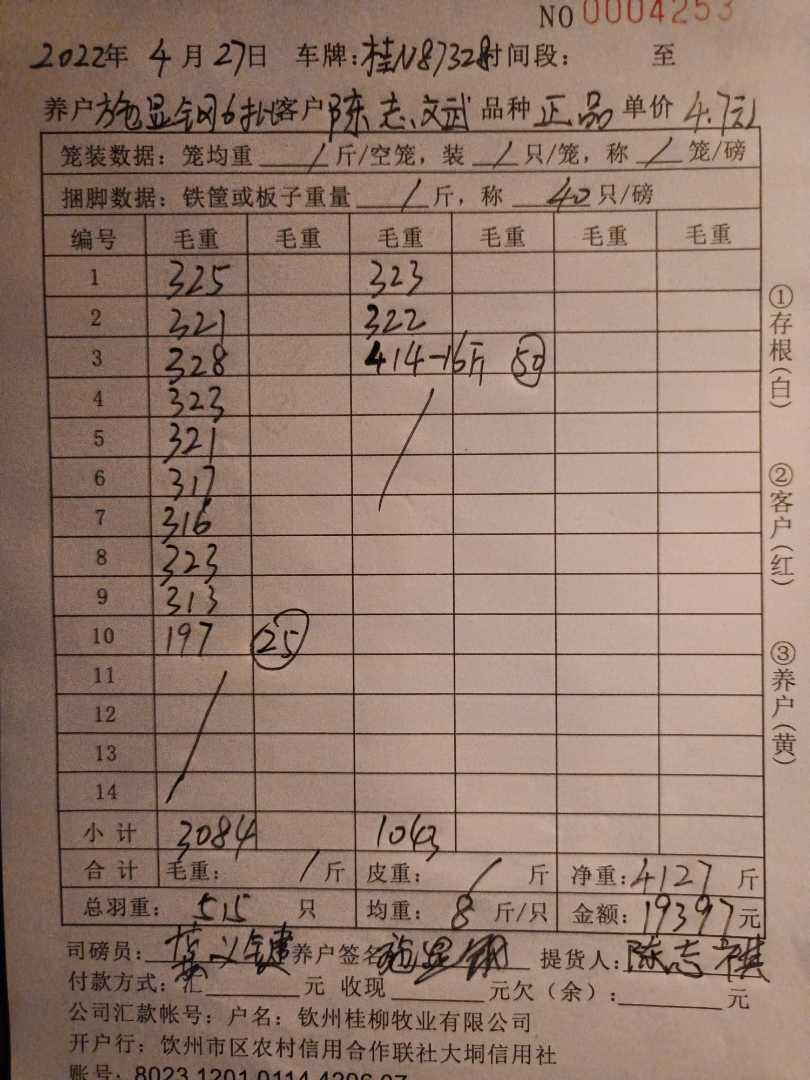 NO 0004253
2022年 4月27日 车牌:桂N87328时间段: 至
养户施显钢6批客户陈志文武品种正品单价4.7元
笼装数据:笼均重 / 斤/空笼,装 / 只/笼,称 / 笼/磅
捆脚数据:铁筐或板子重量 / 斤,称 40 只/磅
编号 毛重 毛重 毛重 毛重 毛重 毛重
1 325 323
2 321 322
3 328 414-16斤 50
4 323 /
5 321
6 317
7 316
8 323
9 313
10 197 25
11 /
12
13
14
小计 3084 1043
合计 毛重: / 斤 皮重: / 斤 净重:4127 斤
总羽重: 515 只 均重: 8 斤/只 金额:19397元
司磅员: 养户签名 施显钢 提货人:陈志祺
付款方式:汇 元 收现 元欠(余): 元
公司汇款帐号:户名:钦州桂柳牧业有限公司
开户行:钦州市区农村信用合作联社大垌信用社
账号:8023 1201 0114 4296 07
①存根(白)
②客户(红)
③养户(黄)